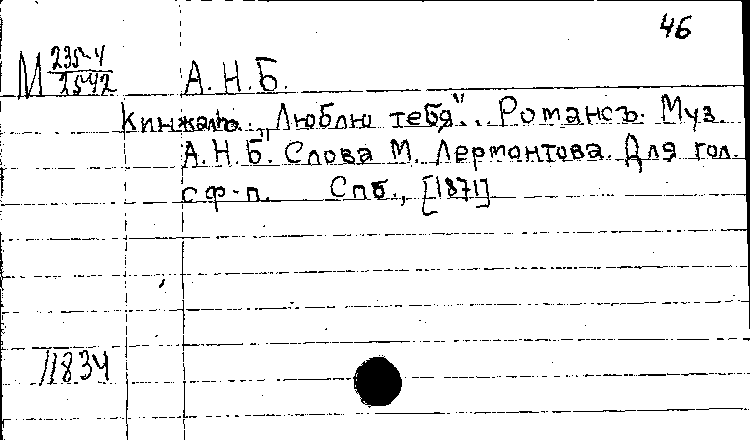 46
М 235-4/2542
А. Н. Б.
Кинжалъ. „Люблю тебя”.. Романсъ. Муз.
А. Н. Б. Слова М. Лермонтова. Для гол.
с ф-п. Спб., [1871]
11834